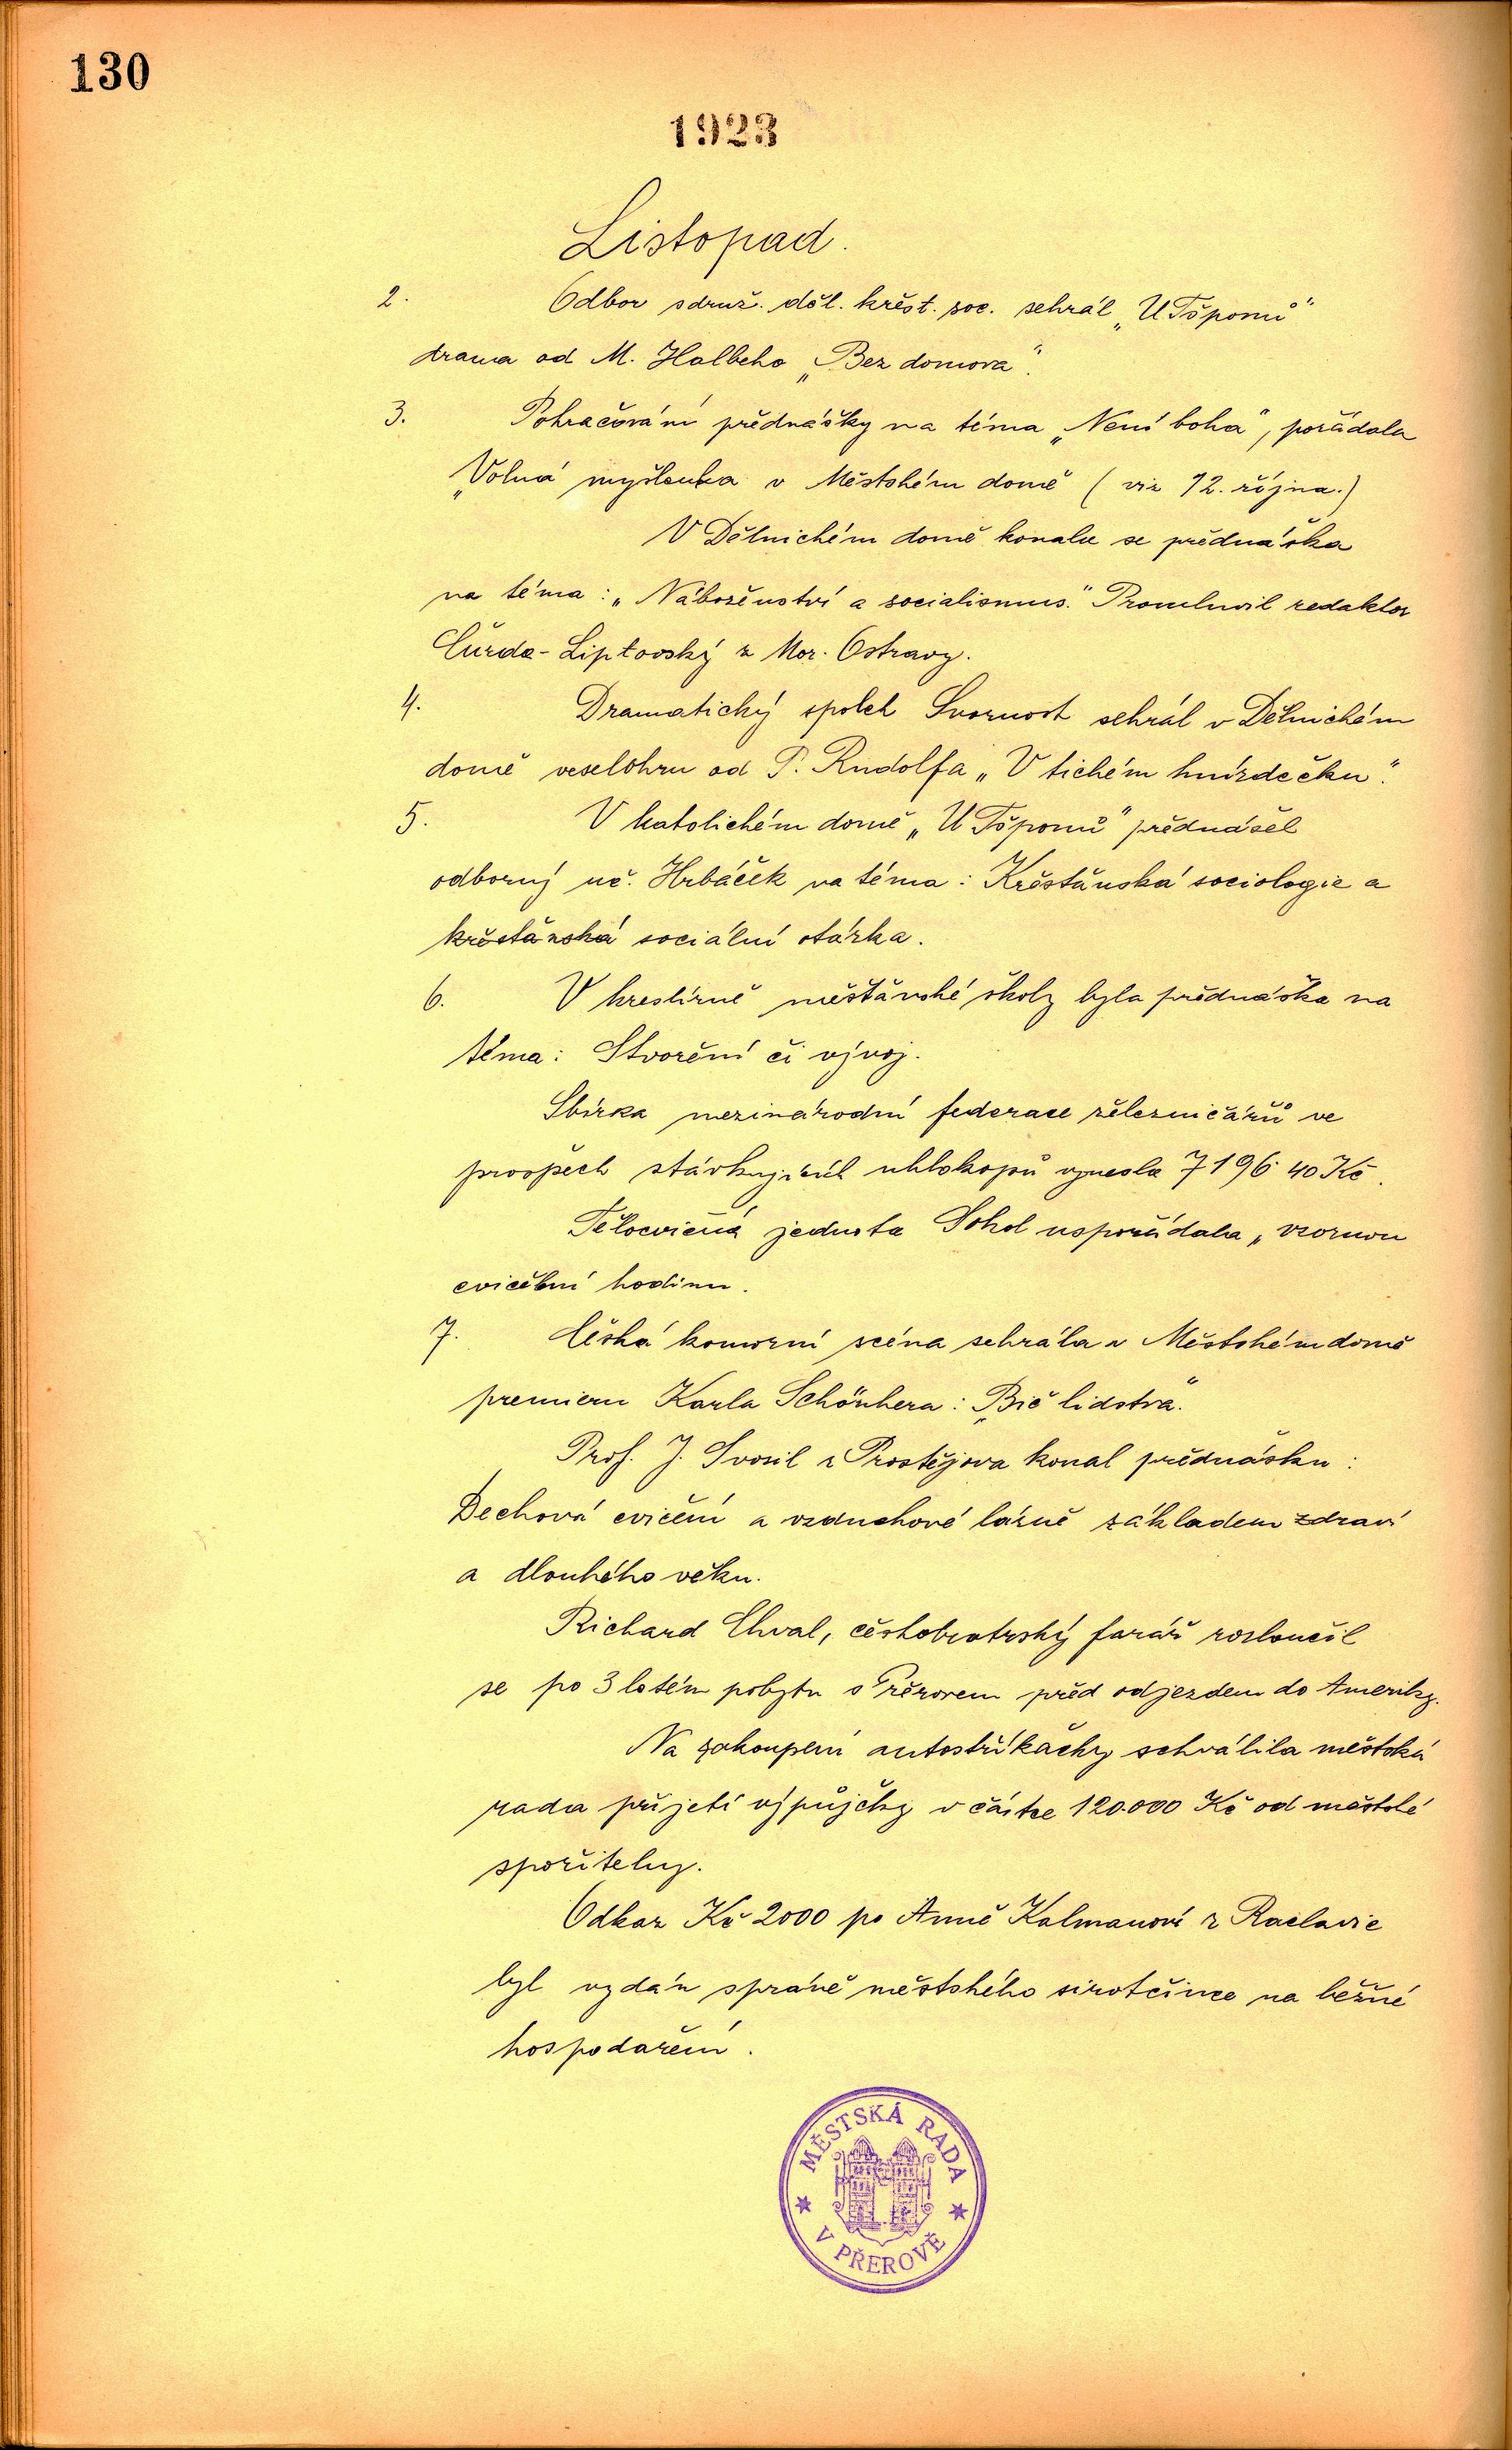 130
1923
Listopad.
2. Odbor sdruž. děl. křest. soc. sehrál „U Töpomů"
drama od M. Halbeho „Bez domova".
3. Pokračování přednášky na téma „Není boha", pořádala
„Volná myšlenka v Městském domě (viz 12. října.)
V Dělnickém domě konala se přednáška
na téma: „Náboženství a socialismus." Promluvil redaktor
Čurda-Liptovský z Mor. Ostravy.
4. Dramatický spolek Svornost sehrál v Dělnickém
domě veselohru od P. Rudolfa „V tichém hnízdečku".
5. V katolickém domě „U Töpomů" přednášel
odborný uč. Hrbáček na téma: Křesťanská sociologie a
křesťanská sociální otázka.
6. V kreslírně měšťanské školy byla přednáška na
téma: Stvoření či vývoj.
Sbírka mezinárodní federace železničářů ve
prospěch stávkujících uhlokopů vynesla 7196·40 Kč.
Tělocvičná jednota Sokol uspořádala „vzornou
cvičební hodinu.
7. Česká komorní scéna sehrála v Městském domě
premieru Karla Schönhera: „Bič lidstva".
Prof. J. Svozil z Prostějova konal přednášku:
Dechová cvičení a vzduchové lázně základem zdraví
a dlouhého věku.
Richard Chval, českobratrský farář rozloučil
se po 3 letém pobytu s Přerovem před odjezdem do Ameriky.
Na zakoupení autostříkačky schválila městská
rada přijetí výpůjčky v částce 120.000 Kč od městské
spořitelny.
Odkaz Kč 2000 po Anně Kalmanové z Raclavic
byl vydán správě městského sirotčince na běžné
hospodaření.
MĚSTSKÁ RADA
V PŘEROVĚ